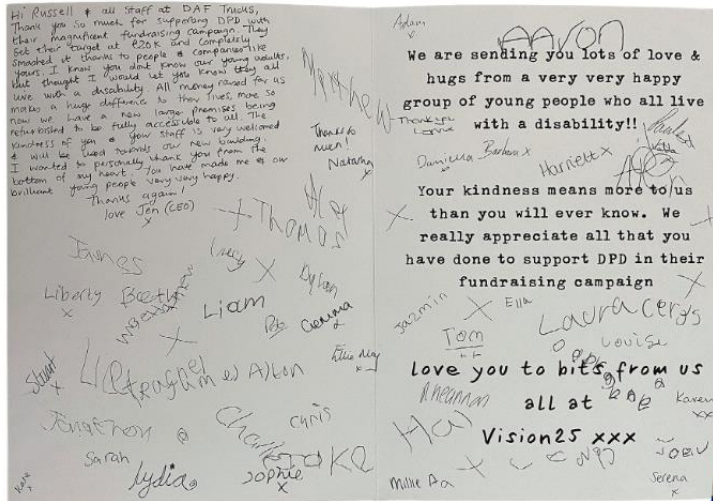 Hi Russell & all staff at DAF Trucks,
Thank you so much for supporting DPD with
their magnificent fundraising campaign. They
set their target at £20K and completely
smashed it thanks to people & companies like
yours. I know you don't know our young adults,
but thought I would let you know they all
live with a disability. All money raised for us
makes a huge difference to their lives, more so
now we have a new larger premises being
refurbished to be fully accessible to all. The
kindness of you & your staff is very welcomed
& will be used towards our new building.
I wanted to personally thank you from the
bottom of my heart. You have made me & our
brilliant young people very very happy.
Thanks again!
love Jen (CEO)
x
Matthew
Thanks so
much!
Natasha
Thomas
James
Lucy
x
Dylan
Liberty
x
Beth
Liam
Gemma
Ellie May
x
Stuart
x
Alton
Jonathon
Chris
Charlotte
Sarah
Lydia
Sophie
x
Kate
x
Adam
Aaron
We are sending you lots of love &
hugs from a very very happy
group of young people who all live
with a disability!!
Thank you
Daniella
Barbara x
Harriett x
Your kindness means more to us
than you will ever know. We
really appreciate all that you
have done to support DPD in their
fundraising campaign
Jazmin
x
Ella
Laura
Tom
Louise
love you to bits from us
Rheannan
all at
Karen
x
Vision25 xxx
Millie
Serena
x